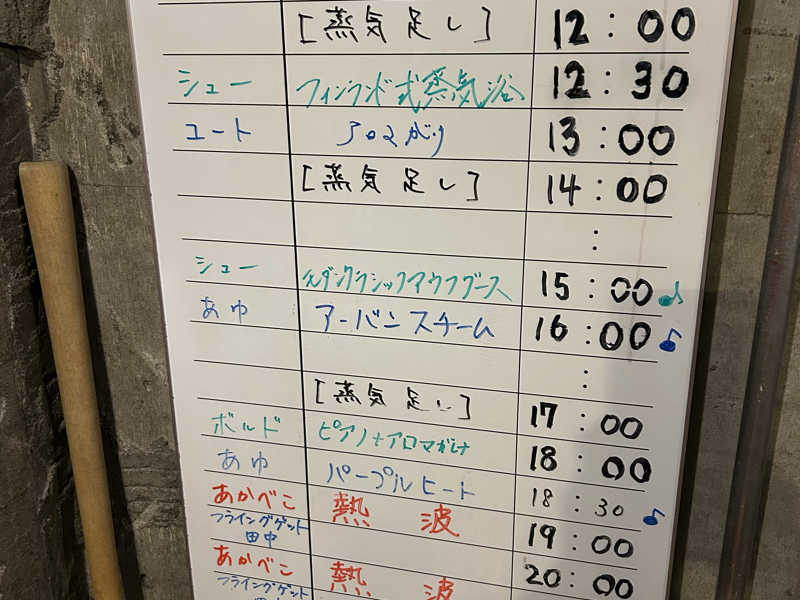 [蒸気足し] 12:00
シュー フィンランド式蒸気浴 12:30
ユート アロマがり 13:00
[蒸気足し] 14:00
:
シュー モダンクラシックアウフグース 15:00♪
あゆ アーバンスチーム 16:00♪
:
[蒸気足し] 17:00
ボルド ピアノ+アロマがけ 18:00
あゆ パープルヒート 18:30♪
あかべこ 熱波 19:00
フライングゲット
田中
あかべこ 熱波 20:00
フライングゲット